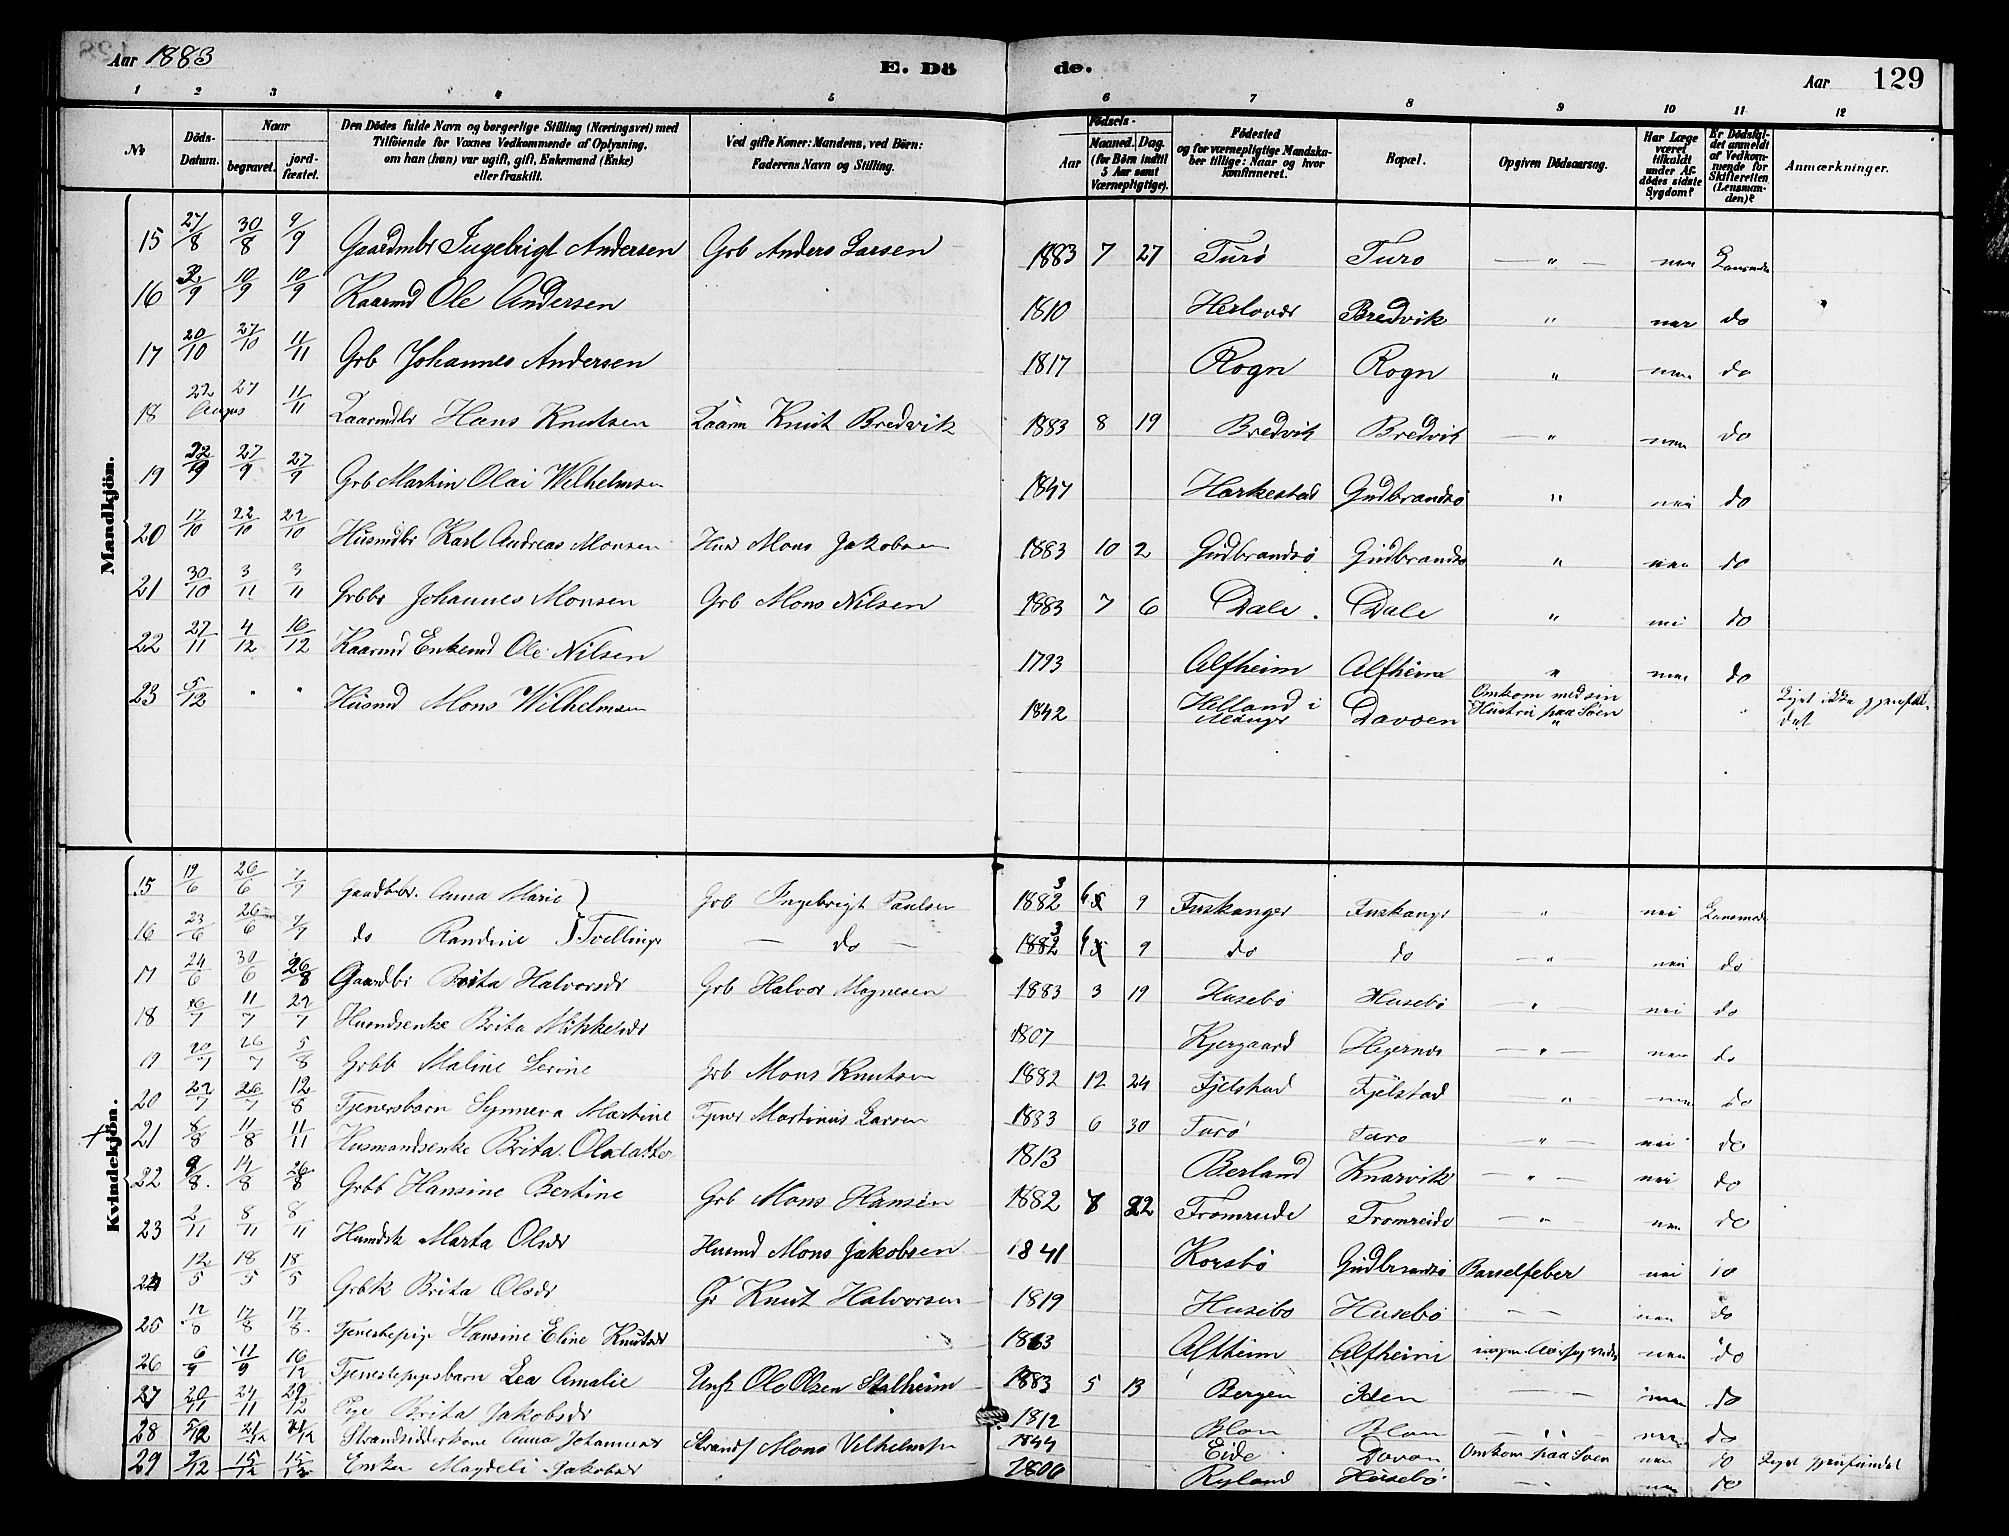 Aar 1883
E. Dö
de.
Aar
129
1 2 3 4 5 6 7 8 9 10 11 12
№
Döds-
Datum.
Naar
begravet.
jord-
fæstet.
Den Dödes fulde Navn og borgerlige Stilling (Næringsvei) med
Tilföiende for Voxnes Vedkommende af Oplysning,
om han (hun) var ugift, gift, Enkemand (Enke)
eller fraskilt.
Ved gifte Koner: Mandens, ved Börn:
Faderens Navn og Stilling.
Födsels-
Aar
Maaned. Dag.
(for Börn indtil
5 Aar samt
Værnepligtige).
Födested
og for værnepligtige Mandska-
ber tillige: Naar og hvor
konfirmeret.
Bopæl.
Opgiven Dödsaarsag.
Har Læge
været
tilkaldt
under Af-
dödes sidste
Sygdom?
Er Dödsfal-
det anmeldt
af Vedkom-
mende for
Skifteretten
(Lensman-
den)?
Anmærkninger.
Mandkjön.
15 27/8 30/8 9/9 Gaardmbr Ingebrigt Andersen Grb Anders Larsen 1883 7 27 Turö Turo — " — nei Lensmd
16 2/9 10/9 10/9 Kaarmd Ole Andersen 1810 Herlovær Bredvik " nei do
17 20/10 27/10 11/11 Grb Johannes Andersen 1817 Rogn Rogn " nei do
18 22 27 11/11 Augus Kaarmdbr Hans Knutsen Kaarm Knut Bredvik 1883 8 19 Bredvik Bredvik — " nei do
19 22/9 27/9 27/9 Grb Martin Olai Wilhelmsen 1847 Harkestad Gudbrandsö " nei do
20 17/10 22/10 22/10 Husmdbr Karl Andreas Monsen Hus Mons Jakobsen 1883 10 2 Gudbrandsö Gudbrandsö " nei do
21 30/10 3/11 3/11 Grbbr Johannes Monsen Grb Mons Nilsen 1883 7 6 Dale Dale " nei do
22 27/11 4/12 16/12 Kaarmd Enkemd Ole Nilsen 1793 Alfheim Alfheim " nei do
23 5/12 " " Husmd Mons Wilhelmsen 1842 Helland i Davøen Omkom med sin
Hustru paa Söen " Liget ikke gjenfun-
det
Kvindekjön.
15 19/6 26/6 7/7 Gaardbbr. Anna Marie } Grb Ingebrigt Paulsen 1883 6 9 Fuskanger Fuskangr — " nei Lensmd
16 23/6 26/6 7/7 do Randine } Tvellinge — do — 1883 6 9 do do — " nei do
17 24/6 30/6 26/8 Gaardbr Brita Halvorsdr Grb Halvor Magnesen 1883 3 19 Husebö Husebö — " nei do
18 11/7 22/7 Husmdsenke Brita Mikkelsdr 1807 Kjergaard Hegernes — " — nei do
19 20/7 26/7 5/8 Grbb Maline Serine Grb Mons Knutsen 1882 12 24 Fjelstad Fjelstad — " nei do
20 22/7 26/7 12/8 Tjenersbarn Synneva Martine Tjener Martinus Larsen 1883 6 30 Turö Turo — " nei do
+ 21 8/8 11/8 11/11 Husmandsenke Brita Olsdatter 1813 Berland Knarvik — " — nei do
22 9/8 14/8 26/8 Grbb Hansine Bertine Grb Mons Hansen 1882 8 22 Fromreide Fromreide — " nei do
23 2/11 8/11 8/11 Husmdsk Marta Olsdr Husmd Mons Jakobsen 1841 Korsbö Gudbrandsö Barselfeber nei do
24 12/5 18/5 18/5 Grbk Brita Olsdr Gr Knut Halvorsen 1819 Husebö Husebö — — nei do
25 12/8 17/8 17/8 Tjenestepige Hansine Eline Knutsdr 1863 Alfheim Alfheim nei do
26 6/9 11/9 16/12 Tjenestepigebarn Lea Amalie Ungk Ole Olsen Stalheim 1883 5 13 Bergen Iden — — nei do
27 20/11 24/11 29/12 Pige Brita Jakobsdr 1812 Blom Blom — " — nei do
28 5/12 Strandsidderkone Anna Johannesdr Strands Mons Vilhelmsen 1844 Eide Davøn Omkom paa Söen nei do Liget gjenfundet
29 9/12 15/12 15/12 Enke Magdeli Jakobsdr 1806 Ryland Husebö — nei do